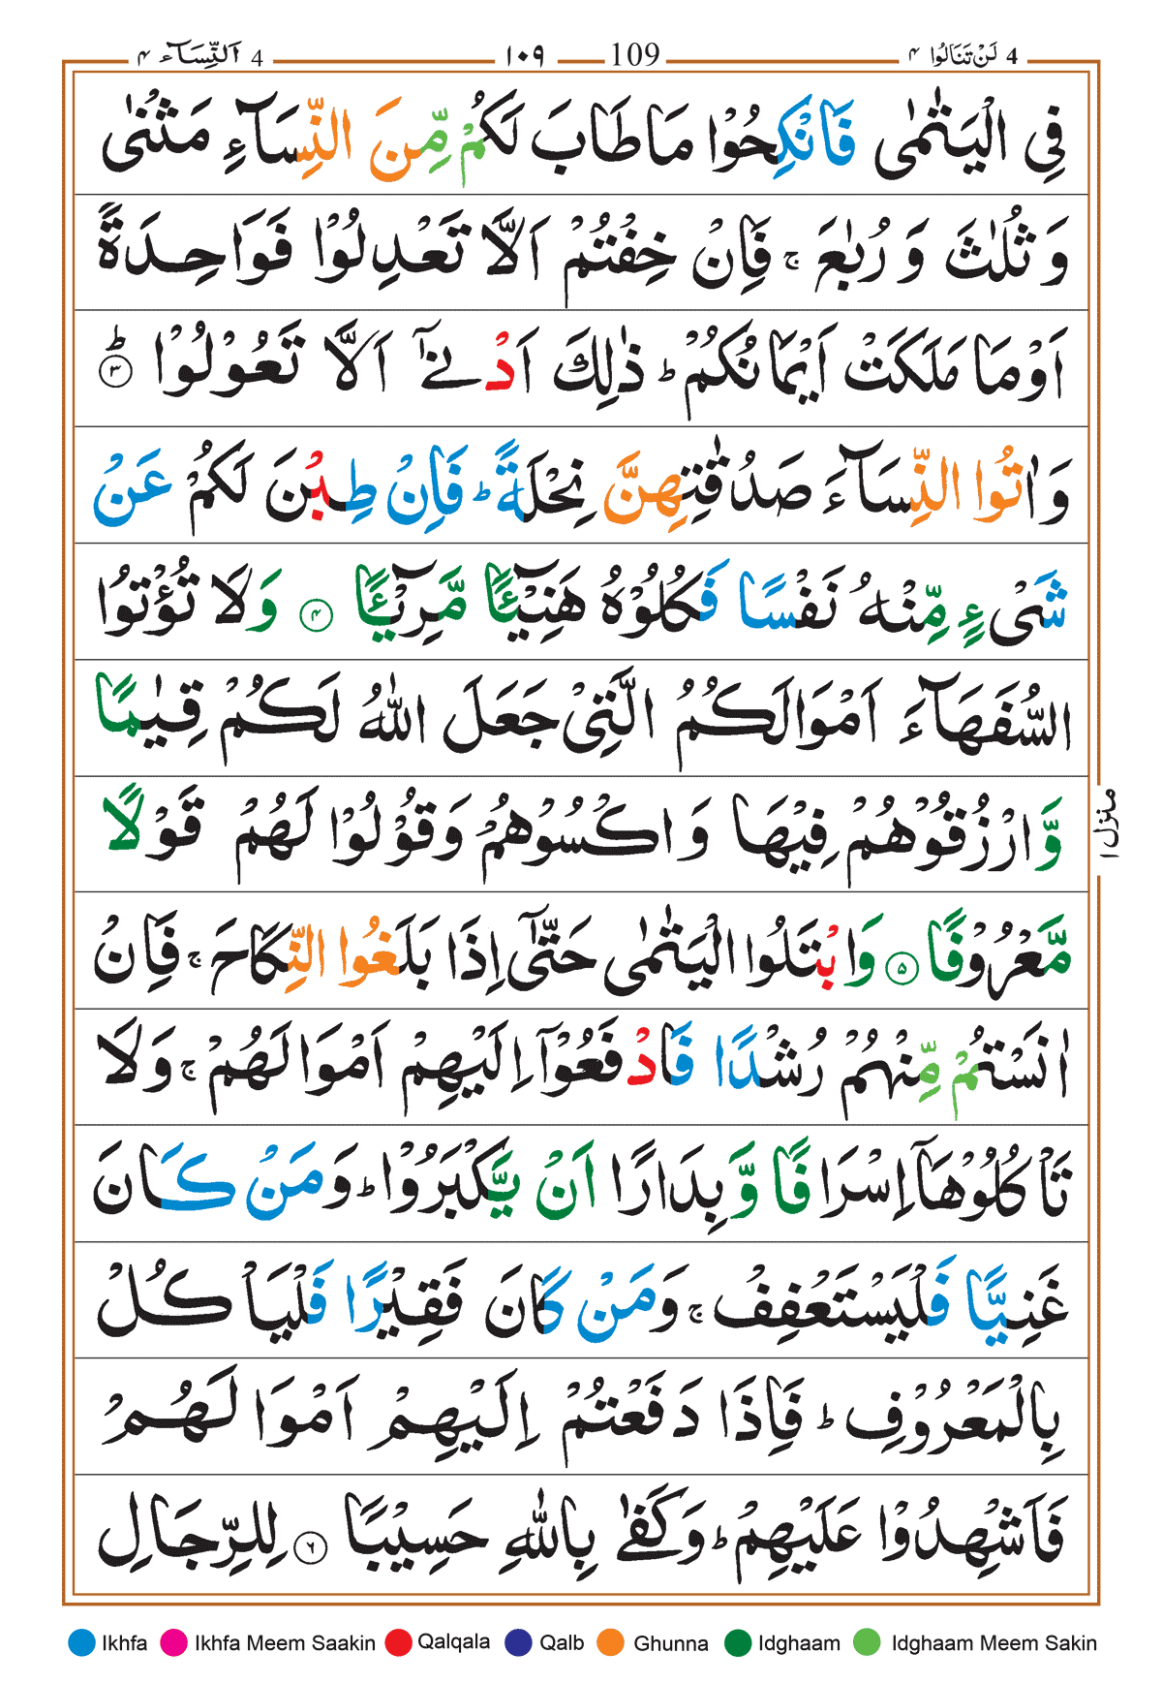 4 لَنْ تَنَالُوا ۴ 109 ١٠٩ 4 اَلنِّسَآء ۴
فِي الْيَتٰمٰى فَانْكِحُوْا مَا طَابَ لَكُمْ مِّنَ النِّسَآءِ مَثْنٰى
وَثُلٰثَ وَرُبٰعَ ۚ فَاِنْ خِفْتُمْ اَلَّا تَعْدِلُوْا فَوَاحِدَةً
اَوْ مَا مَلَكَتْ اَيْمَانُكُمْ ؕ ذٰلِكَ اَدْنٰۤى اَلَّا تَعُوْلُوْا ؕ ۳
وَاٰتُوا النِّسَآءَ صَدُقٰتِهِنَّ نِحْلَةً ؕ فَاِنْ طِبْنَ لَكُمْ عَنْ
شَیْءٍ مِّنْهُ نَفْسًا فَكُلُوْهُ هَنِيْٓـًٔا مَّرِيْٓـًٔا ۴ وَلَا تُؤْتُوا
السُّفَهَآءَ اَمْوَالَكُمُ الَّتِیْ جَعَلَ اللّٰهُ لَكُمْ قِيٰمًا
وَّارْزُقُوْهُمْ فِيْهَا وَاكْسُوْهُمْ وَقُوْلُوْا لَهُمْ قَوْلًا
مَّعْرُوْفًا ۵ وَابْتَلُوا الْيَتٰمٰى حَتّٰۤى اِذَا بَلَغُوا النِّكَاحَ ۚ فَاِنْ
اٰنَسْتُمْ مِّنْهُمْ رُشْدًا فَادْفَعُوْۤا اِلَيْهِمْ اَمْوَالَهُمْ ۚ وَلَا
تَاْكُلُوْهَاۤ اِسْرَافًا وَّبِدَارًا اَنْ يَّكْبَرُوْا ؕ وَمَنْ كَانَ
غَنِيًّا فَلْيَسْتَعْفِفْ ۚ وَمَنْ كَانَ فَقِيْرًا فَلْيَاْكُلْ
بِالْمَعْرُوْفِ ؕ فَاِذَا دَفَعْتُمْ اِلَيْهِمْ اَمْوَالَهُمْ
فَاَشْهِدُوْا عَلَيْهِمْ ؕ وَكَفٰى بِاللّٰهِ حَسِيْبًا ۶ لِلرِّجَالِ
منزل ١
Ikhfa Ikhfa Meem Saakin Qalqala Qalb Ghunna Idghaam Idghaam Meem Sakin